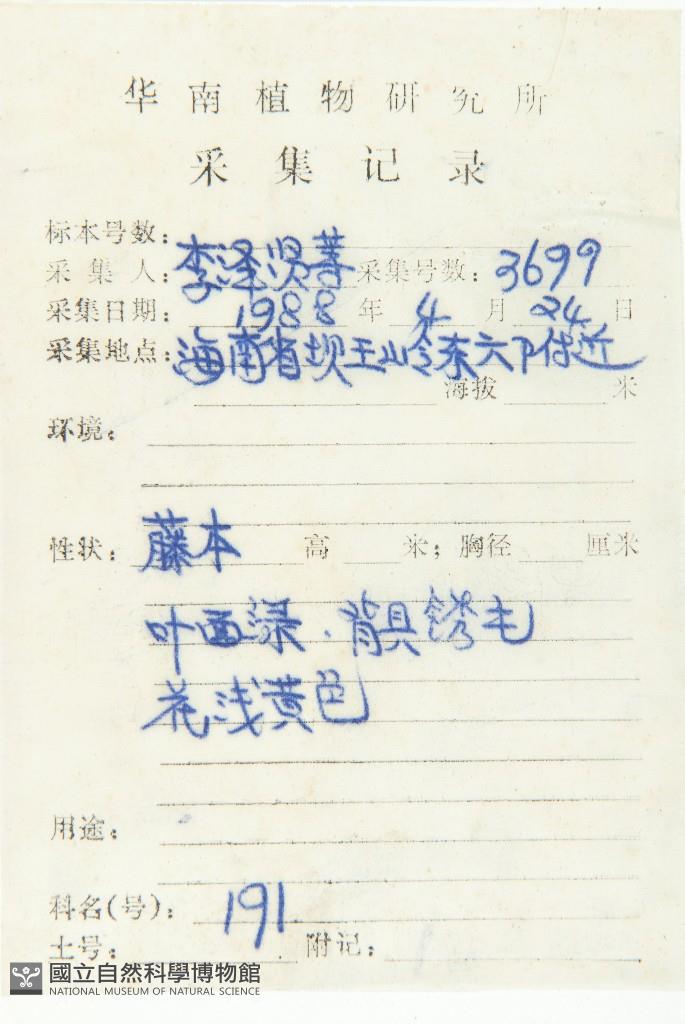 华南植物研究所
采集记录
标本号数:
采集人: 李泽贤等 采集号数: 3699
采集日期: 1988年4月24日
采集地点: 海南省坝王岭东六下附近
海拔 米
环境:
性状: 藤本 高 米; 胸径 厘米
叶面绿.背具锈毛
花浅黄色
用途:
科名(号): 191
土号: 附记:
國立自然科學博物館
NATIONAL MUSEUM OF NATURAL SCIENCE